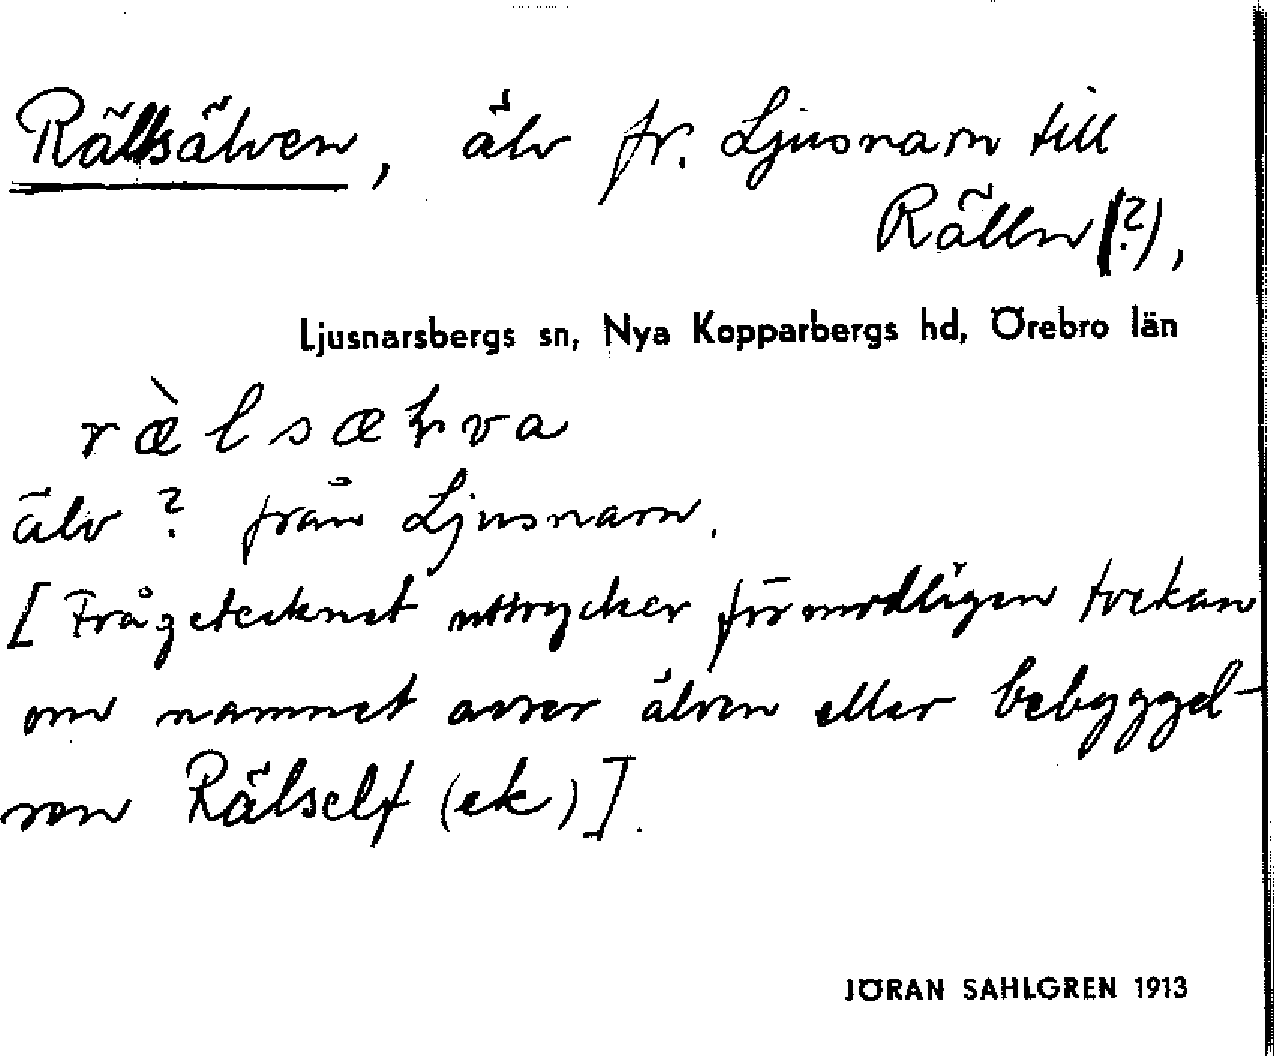 Rällsälven, älv fr. Ljusnarn till
Rälln (?),
Ljusnarsbergs sn, Nya Kopparbergs hd, Örebro län
älv ? från Ljusnarn.
[Frågetecknet uttrycker förmodligen tvekan
om namnet avser älven eller bebyggel-
sen Rälself (ek)].
JÖRAN SAHLGREN 1913